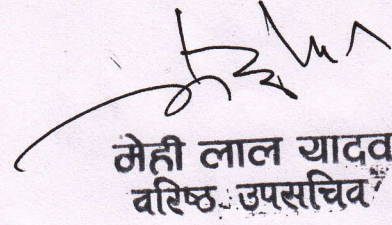 मेही लाल यादव
वरिष्ठ उपसचिव